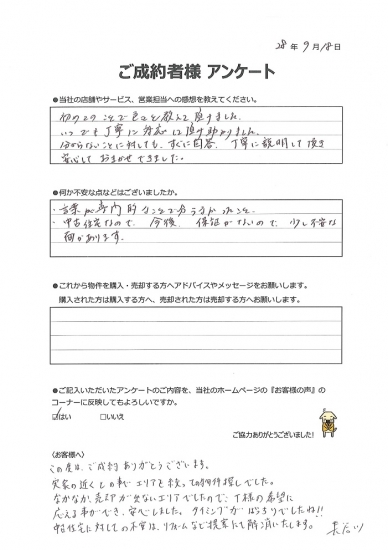 28年 9月 18日
ご成約者様 アンケート
●当社の店舗やサービス、営業担当への感想を教えてください。
初めてのことで色々と教えて頂きました。
いつでも丁寧に対応して頂き助かりました。
分からないことに対しても、すぐに回答、丁寧に説明して頂き
安心しておまかせできました。
●何か不安な点などはございましたか。
・言葉が専門的なことで
・中古住宅なので、今後、保証がないので、少し不安な
面があります。
●これから物件を購入・売却する方へアドバイスやメッセージをお願いします。
購入された方は購入する方へ、売却された方は売却する方へお願いします。
●ご記入いただいたアンケートのご内容を、当社のホームページの『お客様の声』の
コーナーに反映してもよろしいですか。
☑はい □いいえ
ご協力ありがとうございました!
〈お客様へ〉
この度は、ご成約ありがとうございます。
実家の近くとの事でエリアを絞っての物件探しでした。
なかなか売却が出ないエリアでしたので、T様の希望に
応える事ができ、安心しました。タイミングがばっちりでしたね!!
中古住宅に対しての不安は、リフォームなど提案にて解消いたします。 長谷川